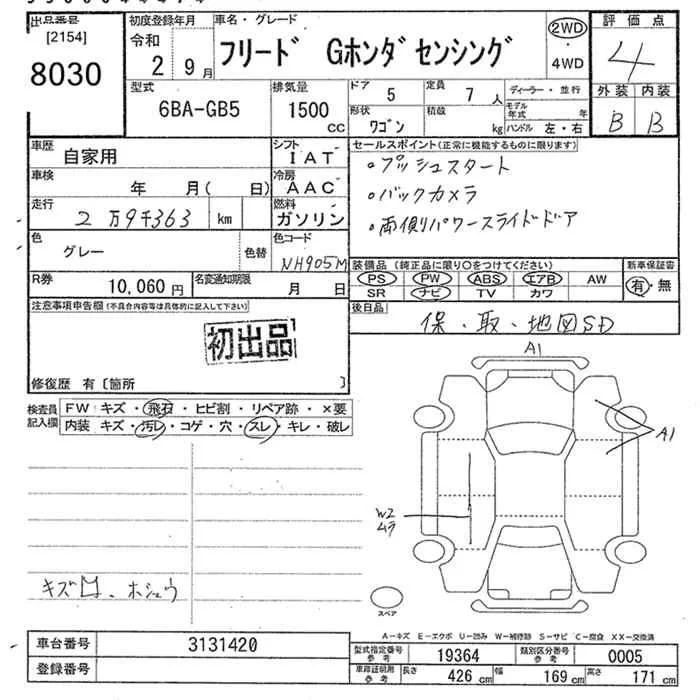 出品番号 初度登録年月 車名・グレード 評価点
[2154] 令和 フリード Gホンダセンシング 2WD 4
8030 2 9月 ・4WD
型式 排気量 ドア 定員 ディーラー・並行 外装 内装
6BA-GB5 1500 CC 5 7人 モデル年式 年 B B
形状 積載
ワゴン kg ハンドル 左・右
車歴 自家用 シフト IAT セールスポイント(正常に機能するものに限ります)
車検 年 月( 日) 冷房 AAC ・プッシュスタート
走行 2万9千363 km 燃料 ガソリン ・バックカメラ
色 グレー 色替 色コード NH905M ・両側パワースライドドア
R券 10,060円 名変通知期限 月 日 装備品(純正品に限り○をつけてください) 新車保証書
PS PW ABS エアB AW 有・無
SR ナビ TV カワ
注意事項申告欄(不具合内容等は具体的に記入して下さい) 後日品 保・取・地図SD
初出品
修復歴 有〔箇所 〕
A1
検査員記入欄 FW キズ・飛石・ヒビ割・リペア跡・×要
内装 キズ・汚レ・コゲ・穴・スレ・キレ・破レ
A1
W2
ムラ
キズ凹、ホシュウ
スペア
A-キズ E-エクボ U-凹み W-補修跡 S-サビ C-腐食 XX-交換済
車台番号 3131420 型式指定番号 参考 19364 類別区分番号 参考 0005
登録番号 車庫証明用 参考 長さ 426cm 幅 169cm 高さ 171cm